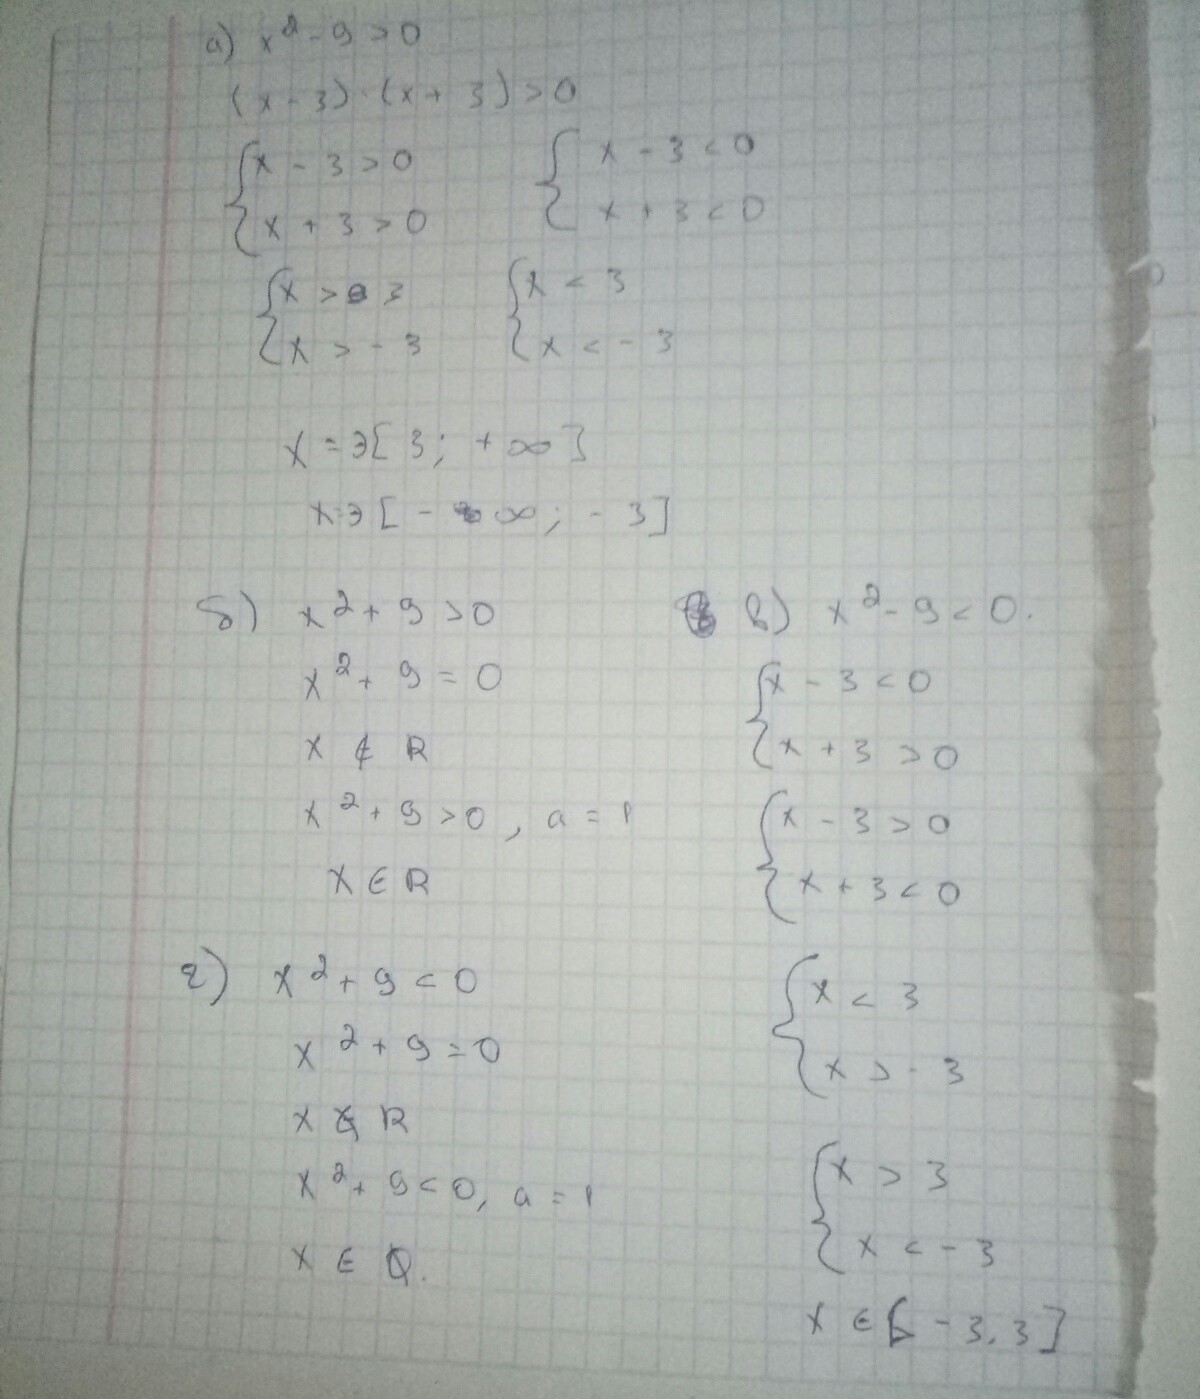 а) x² - 9 > 0
(x - 3) · (x + 3) > 0
{ x - 3 > 0
x + 3 > 0
{ x - 3 < 0
x + 3 < 0
{ x > 3
x > - 3
{ x < 3
x < - 3
x = Э [ 3 ; + ∞ ]
x = Э [ - ∞ ; - 3 ]
б) x² + 9 > 0
x² + 9 = 0
x ∉ R
x² + 9 > 0 , a = 1
x ∈ R
в) x² - 9 < 0.
{ x - 3 < 0
x + 3 > 0
{ x - 3 > 0
x + 3 < 0
{ x < 3
x > - 3
{ x > 3
x < - 3
x ∈ [ - 3. 3 ]
г) x² + 9 < 0
x² + 9 = 0
x ∉ R
x² + 9 < 0, a = 1
x ∈ ∅.